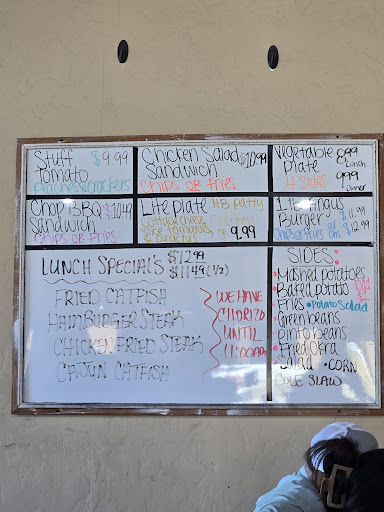 Stuff $9.99
Tomato
peaches & crackers
Chicken Salad $10.99
Sandwich
Chips or Fries
Vegetable 8.99
Plate Lunch
4 Sides 9.99
Dinner
Chop BBQ $10.49
Sandwich
Chips or Fries
Lite Plate HB Patty
Cottage cheese
Slice tomatoes
& Peaches $9.99
Angus
Burger $11.99
$12.99
LUNCH SPECIAL'S $12.99
$11.49 (1/2)
FRIED CATFISH
HAMBURGER STEAK
CHICKEN FRIED STEAK
CAJUN CATFISH
WE HAVE
CHORIZO
UNTIL
11:00AM
SIDES:
• Mashed potatoes
• Baked potato
• Fries • Potato Salad
• Green beans
• Pinto beans
• Fried Okra
• Salad • CORN
COLE SLAW